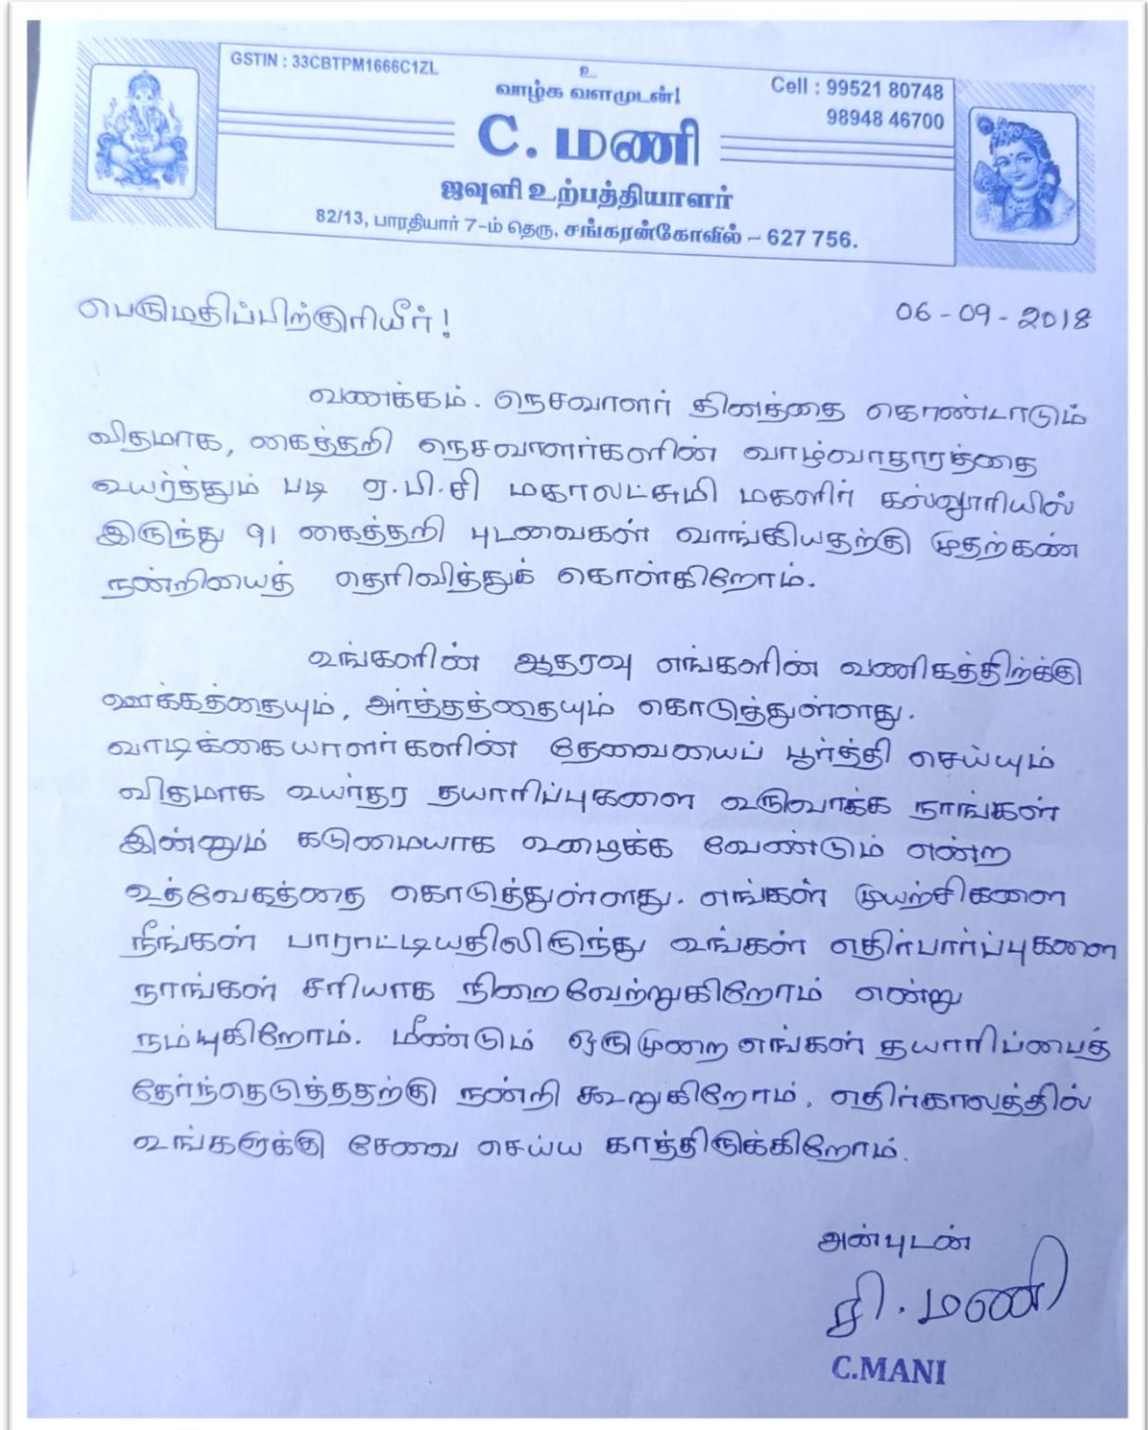 GSTIN : 33CBTPM1666C1ZL
உ
வாழ்க வளமுடன்!
Cell : 99521 80748
98948 46700
C. மணி
ஜவுளி உற்பத்தியாளர்
82/13, பாரதியார் 7-ம் தெரு, சங்கரன்கோவில் – 627 756.
பெருமதிப்பிற்குரியீர்!
06-09-2018
வணக்கம். நெசவாளர் தினத்தை கொண்டாடும்
விதமாக, கைத்தறி நெசவாளர்களின் வாழ்வாதாரத்தை
உயர்த்தும் படி ஏ.பி.சி மகாலட்சுமி மகளிர் கல்லூரியில்
இருந்து 91 கைத்தறி புடவைகள் வாங்கியதற்கு முதற்கண்
நன்றியைத் தெரிவித்துக் கொள்கிறோம்.
உங்களின் ஆதரவு எங்களின் வணிகத்திற்க்கு
ஊக்கத்தையும், அர்த்தத்தையும் கொடுத்துள்ளது.
வாடிக்கையாளர்களின் தேவையைப் பூர்த்தி செய்யும்
விதமாக உயர்தர தயாரிப்புகளை உருவாக்க நாங்கள்
இன்னும் கடுமையாக உழைக்க வேண்டும் என்ற
உத்வேகத்தை கொடுத்துள்ளது. எங்கள் முயற்சிகளை
நீங்கள் பாராட்டியதிலிருந்து உங்கள் எதிர்பார்ப்புகளை
நாங்கள் சரியாக நிறைவேற்றுகிறோம் என்று
நம்புகிறோம். மீண்டும் ஒருமுறை எங்கள் தயாரிப்பைத்
தேர்ந்தெடுத்ததற்கு நன்றி கூறுகிறோம். எதிர்காலத்தில்
உங்களுக்கு சேவை செய்ய காத்திருக்கிறோம்.
அன்புடன்
சி. மணி
C.MANI